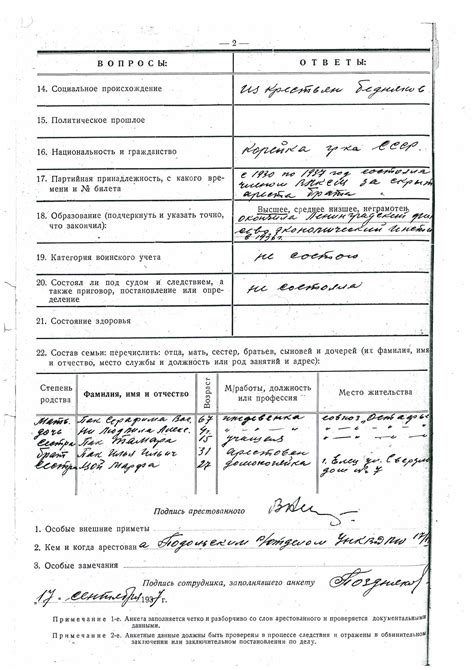 — 2 —
ВОПРОСЫ: ОТВЕТЫ:
14. Социальное происхождение из крестьян бедняков
15. Политическое прошлое
16. Национальность и гражданство Кореянка гр-ка СССР.
17. Партийная принадлежность, с какого времени и № билета
с 1930 по 1937 год состояла
членом ВЛКСМ за скрыт
ареста брата
18. Образование (подчеркнуть и указать точно, что закончил):
Высшее, среднее низшее, неграмотен,
окончила Ленинградский
экономический инсти
с 1936 г.
19. Категория воинского учета не состою
20. Состоял ли под судом и следствием, а также приговор, постановление или определение не состояла
21. Состояние здоровья
22. Состав семьи: перечислить: отца, мать, сестер, братьев, сыновей и дочерей (их фамилия, имя
и отчество, место службы и должность или род занятий и адрес):
Степень родства Фамилия, имя и отчество Возраст М/работы, должность или профессия Место жительства
Мать Пак Серафима Вас. 67 иждевенка совхоз
дочь Ни Людмила Алекс. 4 " "
Сестра Пак Тамара 15 учащаяся " "
брат Пак Илья Ильич 31 арестован
Сестра Цой Марфа 27 домохозяйка г. Елец ул. Свердло
дом № 7
Подпись арестованного
1. Особые внешние приметы
2. Кем и когда арестован а Подольским р/отделом УНКВД МО 17/IX
3. Особые замечания
Подпись сотрудника, заполнявшего анкету Поздняков
17 сентября 1937 г.
Примечание 1-е. Анкета заполняется четко и разборчиво со слов арестованного и проверяется документальными
данными.
Примечание 2-е. Анкетные данные должны быть проверены в процессе следствия и отражены в обвинительном
заключении или заключительном постановлении по делу.